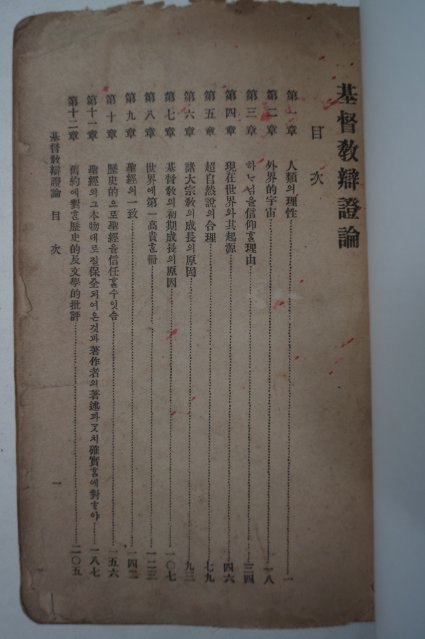 基督敎辯證論
目次
第一章 人類의理性 一
第二章 外界的宇宙 一八
第三章 하ᄂᆞ님을信仰ᄒᆞᆯ理由 三四
第四章 現在世界와其起源 四六
第五章 超自然說의合理 七九
第六章 諸大宗敎의成長의原因 九三
第七章 基督敎의初期成長의原因 一〇七
第八章 世界에第一高貴ᄒᆞᆫ冊 一二三
第九章 聖經의一致 一四二
第十章 歷史的으로聖經을信任ᄒᆞᆯ수잇슴 一五六
第十一章 聖經의그本物대로잘保全되여온것과著作者의著述과ᄀᆞᆺ치確實ᄒᆞᆷ에對ᄒᆞ야 一八七
第十二章 舊約에對ᄒᆞᆫ歷史的及文學的批評 二〇五
基督敎辯證論 目次 一